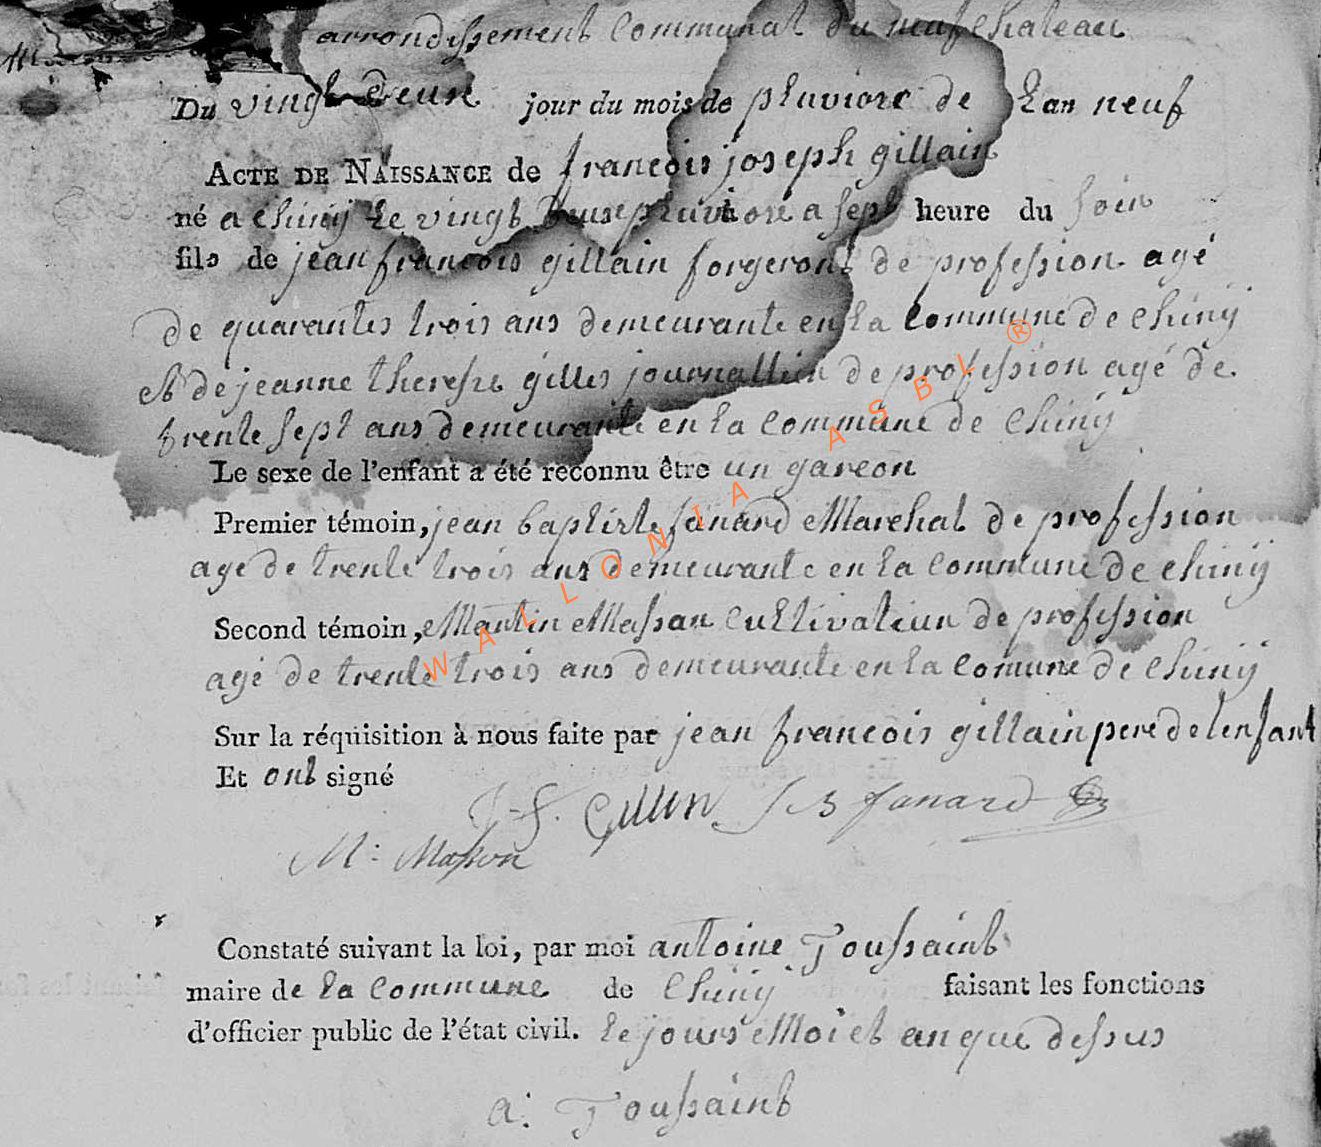 arrondissement Communal du neufchateau
Du vingt Deux jour du mois de pluviore de Lan neuf
ACTE DE NAISSANCE de francois joseph gillain
né a chinij Le vingt Deux pluviore a sept heure du soir
fils de jean francois gillain forgeront de profession agé
de quarantes trois ans demeurante en La Commune de chinij
et de jeanne therese gilles journallier de profession agé de
trente sept ans demeurante en La Commune de Chinij
Le sexe de l'enfant a été reconnu être un garcon
Premier témoin, jean baptiste fanard Marchal de profession
age de trente trois ans demeurante en La Commune de chinij
Second témoin, Martin Massan Cultivateur de profession
agé de trente trois ans demeurante en La Comune de Chinij
Sur la réquisition à nous faite par jean francois gillain pere de lenfant
Et ont signé
J-f. Gillin J B fanard
M: Masson
Constaté suivant la loi, par moi antoine Toussaint
maire de La Commune de Chinij faisant les fonctions
d'officier public de l'état civil. Le jours Moi et an que dessus
a: Toussaint
WALLONIA ASBL ®